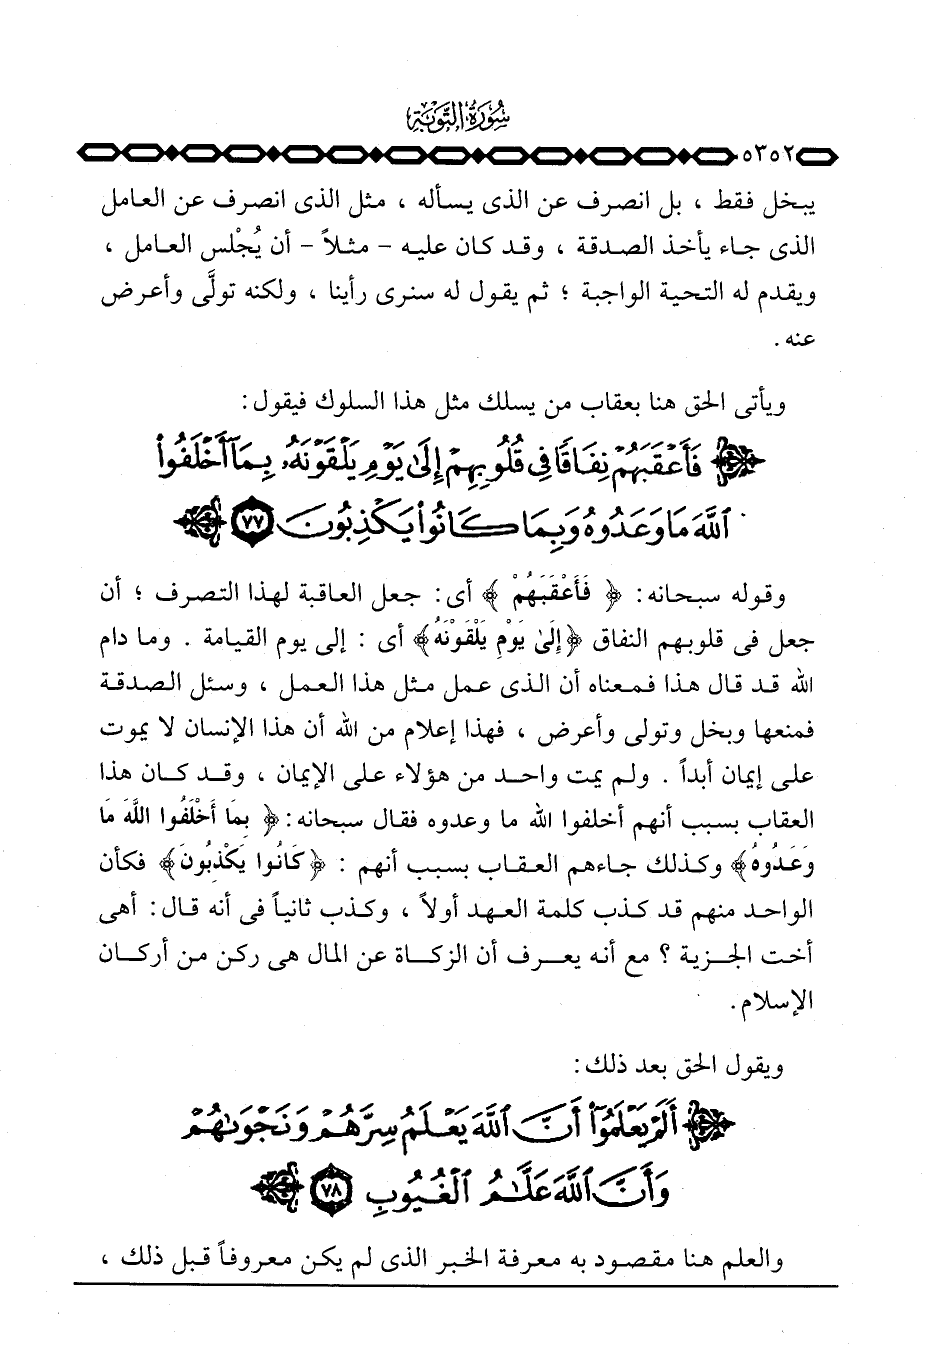 سُورَةُ التَّوْبَةِ
٥٣٥٢
يبخل فقط ، بل انصرف عن الذى يسأله ، مثل الذى انصرف عن العامل
الذى جاء يأخذ الصدقة ، وقد كان عليه - مثلاً - أن يُجْلس العامل ،
ويقدم له التحية الواجبة ؛ ثم يقول له سنرى رأينا ، ولكنه تولَّى وأعرض
عنه .
ويأتى الحق هنا بعقاب من يسلك مثل هذا السلوك فيقول:
فَأَعْقَبَهُمْ نِفَاقًا فِى قُلُوبِهِمْ إِلَىٰ يَوْمِ يَلْقَوْنَهُۥ بِمَآ أَخْلَفُوا۟
ٱللَّهَ مَا وَعَدُوهُ وَبِمَا كَانُوا۟ يَكْذِبُونَ ٧٧
وقوله سبحانه: ﴿ فَأَعْقَبَهُمْ ﴾ أى: جعل العاقبة لهذا التصرف ؛ أن
جعل فى قلوبهم النفاق ﴿إِلَىٰ يَوْمِ يَلْقَوْنَهُ﴾ أى : إلى يوم القيامة . وما دام
الله قد قال هذا فمعناه أن الذى عمل مثل هذا العمل ، وسئل الصدقة
فمنعها وبخل وتولى وأعرض ، فهذا إعلام من الله أن هذا الإنسان لا يموت
على إيمان أبداً . ولم يمت واحد من هؤلاء على الإيمان ، وقد كان هذا
العقاب بسبب أنهم أخلفوا الله ما وعدوه فقال سبحانه: ﴿ بِمَا أَخْلَفُوا اللَّهَ مَا
وَعَدُوهُ﴾ وكذلك جاءهم العقاب بسبب أنهم : ﴿كَانُوا يَكْذِبُونَ﴾ فكأن
الواحد منهم قد كذب كلمة العهد أولاً ، وكذب ثانياً فى أنه قال: أهى
أخت الجزية ؟ مع أنه يعرف أن الزكاة عن المال هى ركن من أركان
الإسلام.
ويقول الحق بعد ذلك:
أَلَمْ يَعْلَمُوٓا۟ أَنَّ ٱللَّهَ يَعْلَمُ سِرَّهُمْ وَنَجْوَىٰهُمْ
وَأَنَّ ٱللَّهَ عَلَّٰمُ ٱلْغُيُوبِ ٧٨
والعلم هنا مقصود به معرفة الخبر الذى لم يكن معروفاً قبل ذلك ،